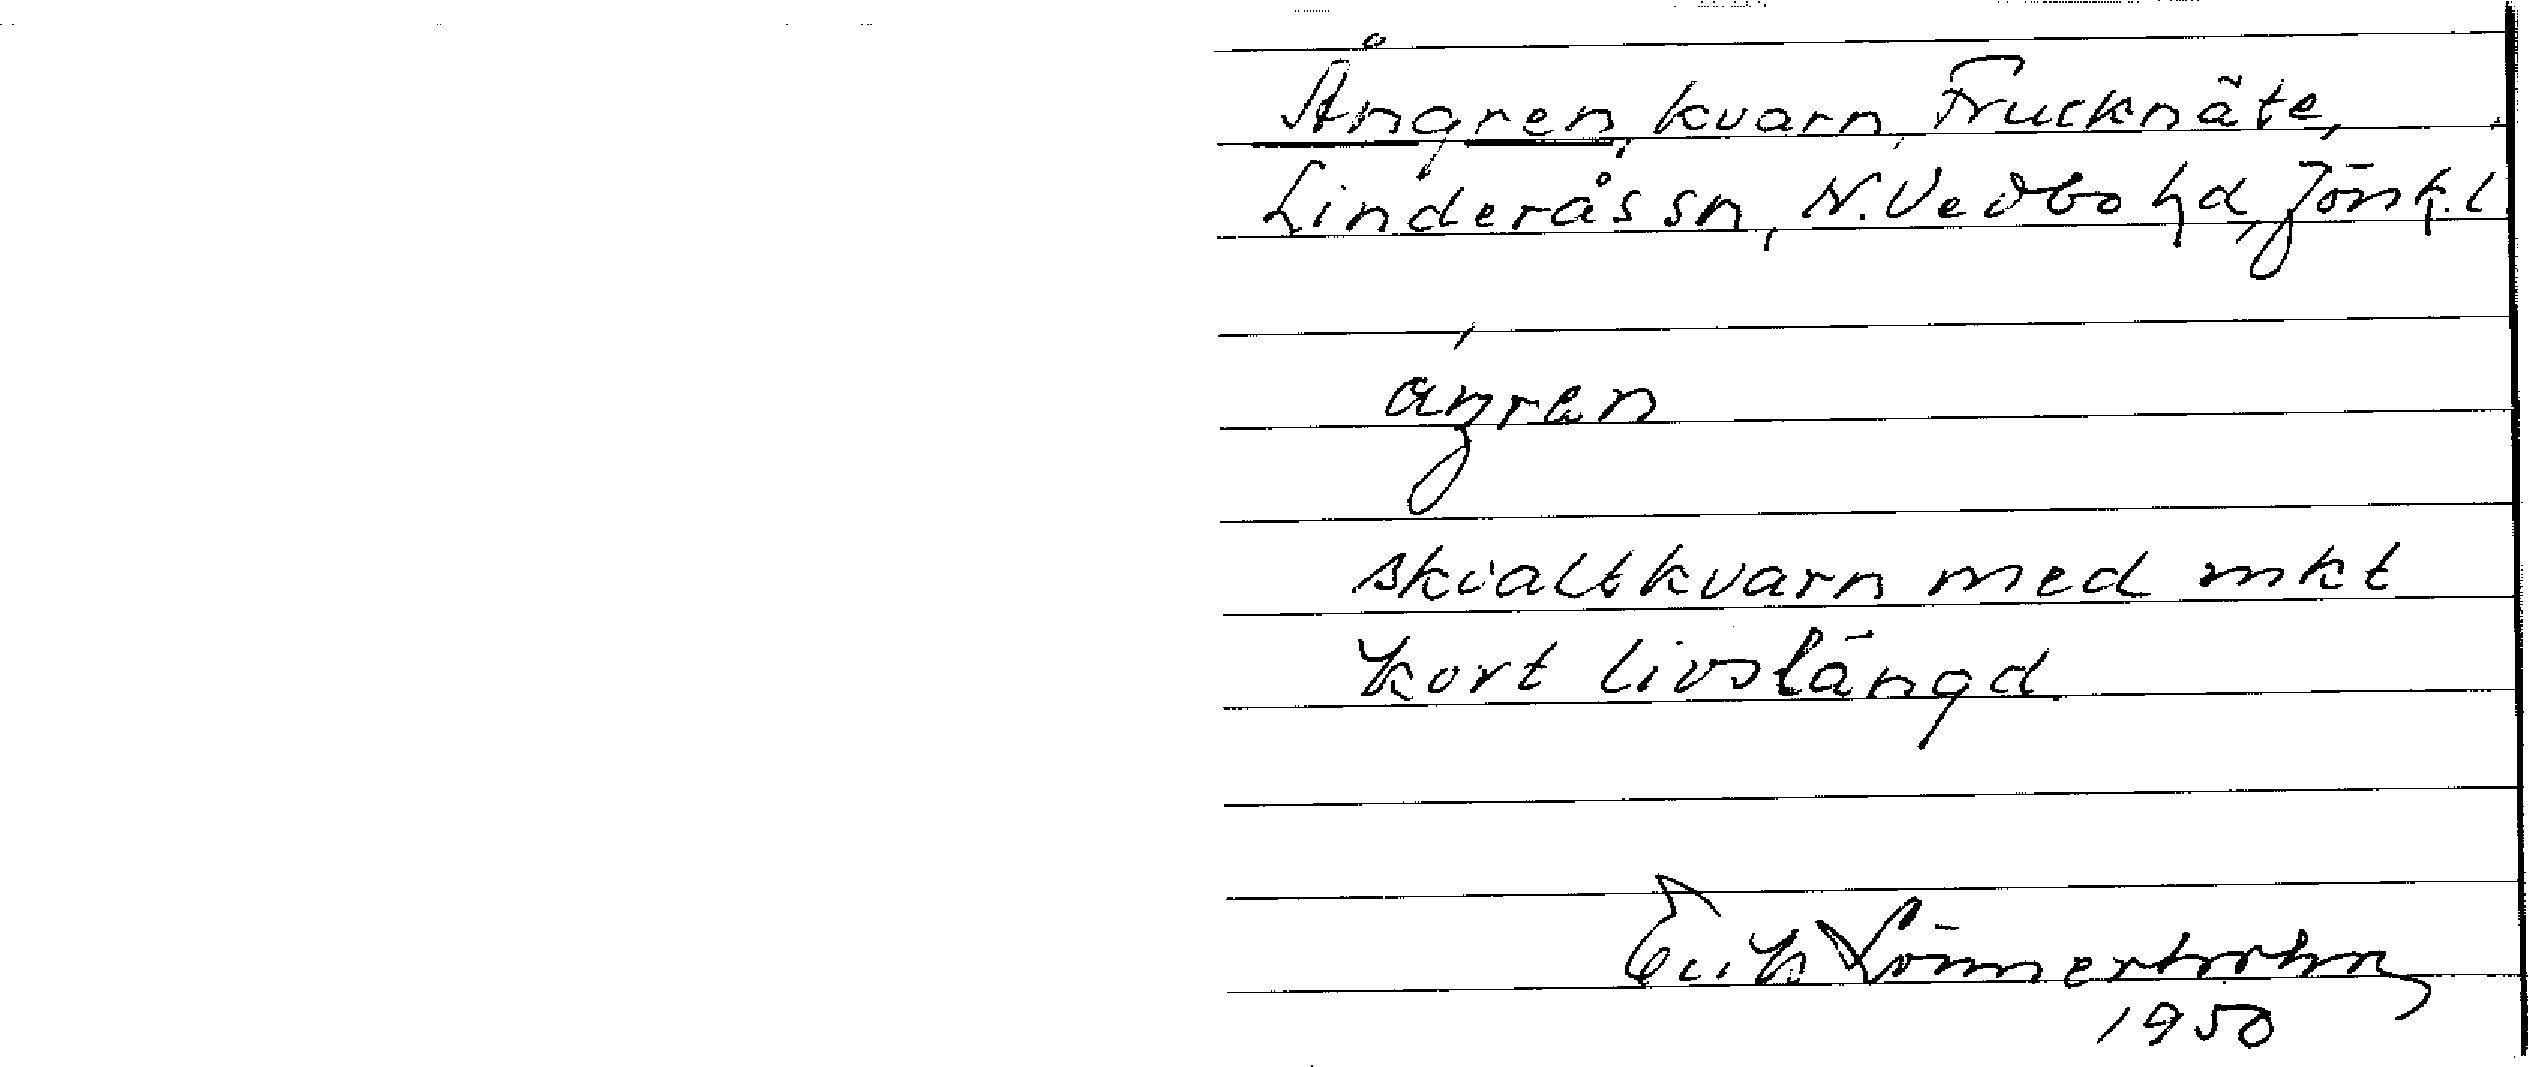 Ångren, kvarn, Frucknäte,
Linderås sn, N. Vedbo hd, Jönk. l
ángren
skvaltkvarn med mkt
kort livslängd.
Erik
1950